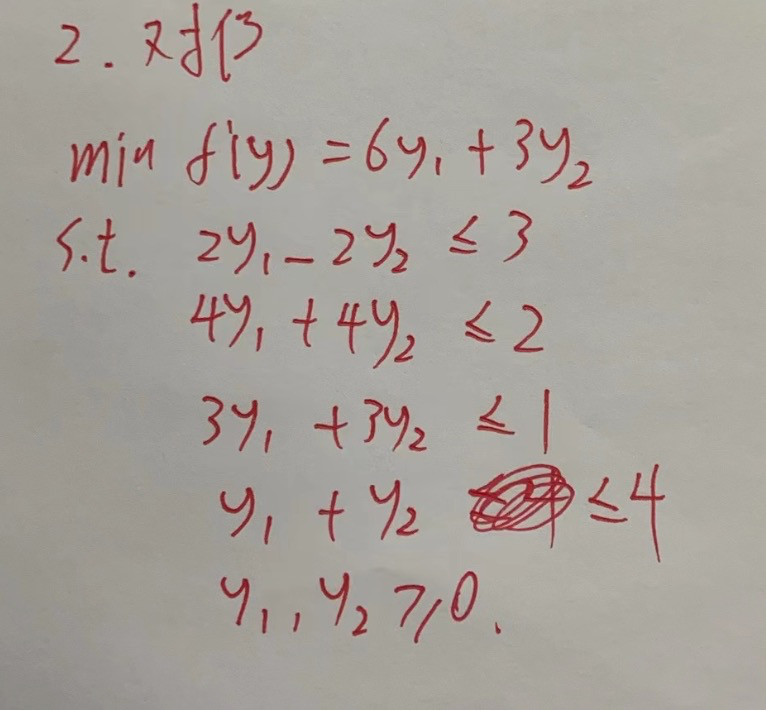 2. 对偶
min f(y) = 6y₁ + 3y₂
s.t. 2y₁ - 2y₂ ≤ 3
4y₁ + 4y₂ ≤ 2
3y₁ + 3y₂ ≤ 1
y₁ + y₂ ≤ 4
y₁, y₂ ≥ 0.